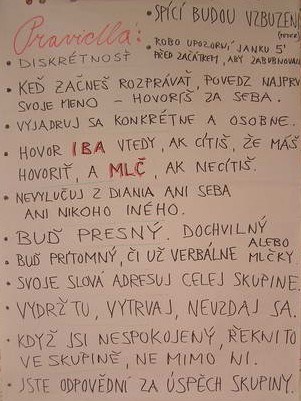 Pravidlla:
• SPÍCÍ BUDOU VZBUZENI
• ROBO UPOZORNÍ JANKU 5'
PŘED ZAČÁTKEM, ABY ZABUBNOVALA
• DISKRÉTNOSŤ
• KEĎ ZAČNEŠ ROZPRÁVAŤ, POVEDZ NAJPRV
SVOJE MENO - HOVORÍŠ ZA SEBA.
• VYJADRUJ SA KONKRÉTNE A OSOBNE.
• HOVOR IBA VTEDY, AK CÍTIŠ, ŽE MÁŠ
HOVORIŤ, A MLČ, AK NECÍTIŠ.
• NEVYLUČUJ Z DIANIA ANI SEBA
ANI NIKOHO INÉHO.
• BUĎ PRESNÝ. DOCHVILNÝ
• BUĎ PRÍTOMNÝ, ČI UŽ VERBÁLNE ALEBO MLČKY.
• SVOJE SLOVÁ ADRESUJ CELEJ SKUPINE.
• VYDRŽ TU, VYTRVAJ, NEVZDAJ SA.
• KDYŽ JSI NESPOKOJENÝ, ŘEKNI TO
VE SKUPINĚ, NE MIMO NI.
• JSTE ODPOVĚDNÍ ZA ÚSPĚCH SKUPINY.